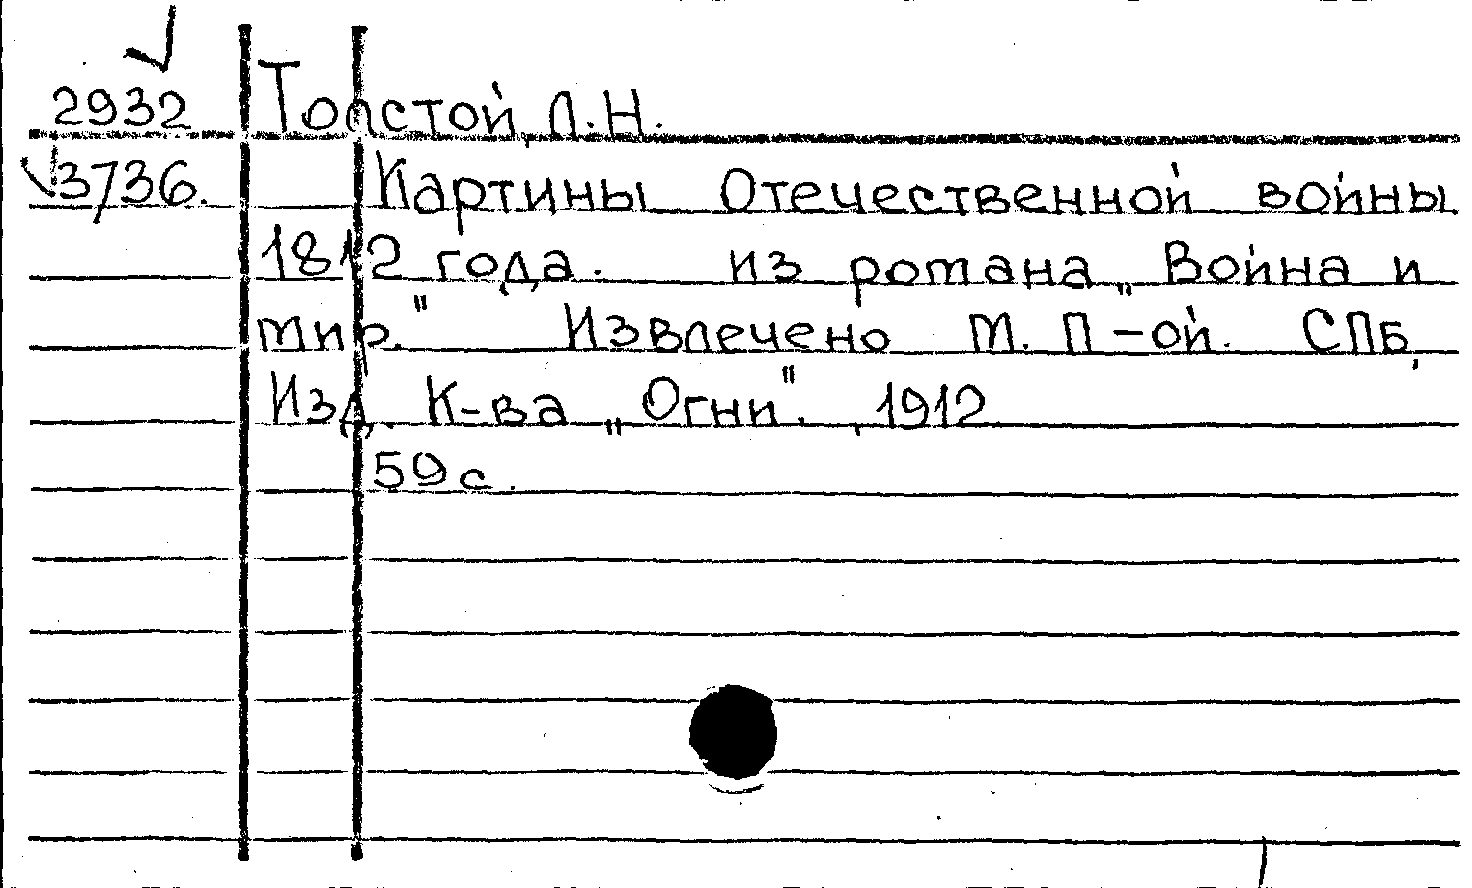 2932 Толстой, Л.Н.
3736. Картины Отечественной войны
1812 года. из романа „Война и
мир." Извлечено М. П-ой. СПб,
Изд. К-ва „Огни". , 1912
59 с.